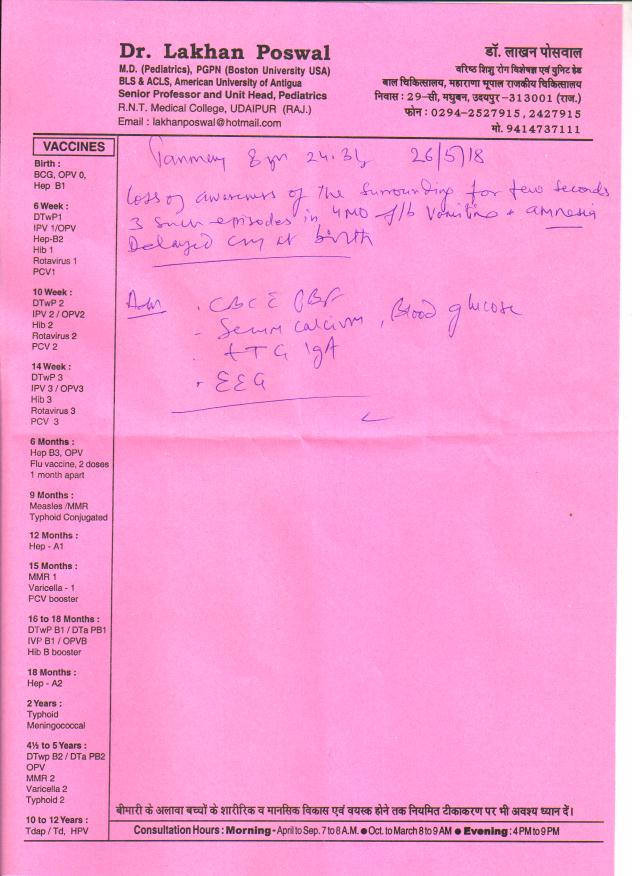 Dr. Lakhan Poswal
M.D. (Pediatrics), PGPN (Boston University USA)
BLS & ACLS, American University of Antigua
Senior Professor and Unit Head, Pediatrics
R.N.T. Medical College, UDAIPUR (RAJ.)
Email : lakhanposwal@hotmail.com
डॉ. लाखन पोसवाल
वरिष्ठ शिशु रोग विशेषज्ञ एवं युनिट हेड
बाल चिकित्सालय, महाराणा भूपाल राजकीय चिकित्सालय
निवास : 29-सी, मधुबन, उदयपुर-313001 (राज.)
फोन : 0294-2527915, 2427915
मो. 9414737111
VACCINES
Birth :
BCG, OPV 0,
Hep B1
6 Week :
DTwP1
IPV 1/OPV
Hep-B2
Hib 1
Rotavirus 1
PCV1
10 Week :
DTwP 2
IPV 2 / OPV2
Hib 2
Rotavirus 2
PCV 2
14 Week :
DTwP 3
IPV 3 / OPV3
Hib 3
Rotavirus 3
PCV 3
6 Months :
Hep B3, OPV
Flu vaccine, 2 doses
1 month apart
9 Months :
Measles /MMR
Typhoid Conjugated
12 Months :
Hep - A1
15 Months :
MMR 1
Varicella - 1
PCV booster
16 to 18 Months :
DTwP B1 / DTa PB1
IVP B1 / OPVB
Hib B booster
18 Months :
Hep - A2
2 Years :
Typhoid
Meningococcal
4½ to 5 Years :
DTwp B2 / DTa PB2
OPV
MMR 2
Varicella 2
Typhoid 2
10 to 12 Years :
Tdap / Td, HPV
Tanmay 8 yr 26/5/18
Loss of awareness of the surrounding for few seconds
3 such episodes in 4MO f/b vomiting + amnesia
Delayed cry at birth
Adv . CBC c PBF
- Serum calcium, Blood glucose
tTG IgA
• EEG
बीमारी के अलावा बच्चों के शारीरिक व मानसिक विकास एवं वयस्क होने तक नियमित टीकाकरण पर भी अवश्य ध्यान दें।
Consultation Hours : Morning - April to Sep. 7 to 8 A.M. ● Oct. to March 8 to 9 AM ● Evening : 4 PM to 9 PM